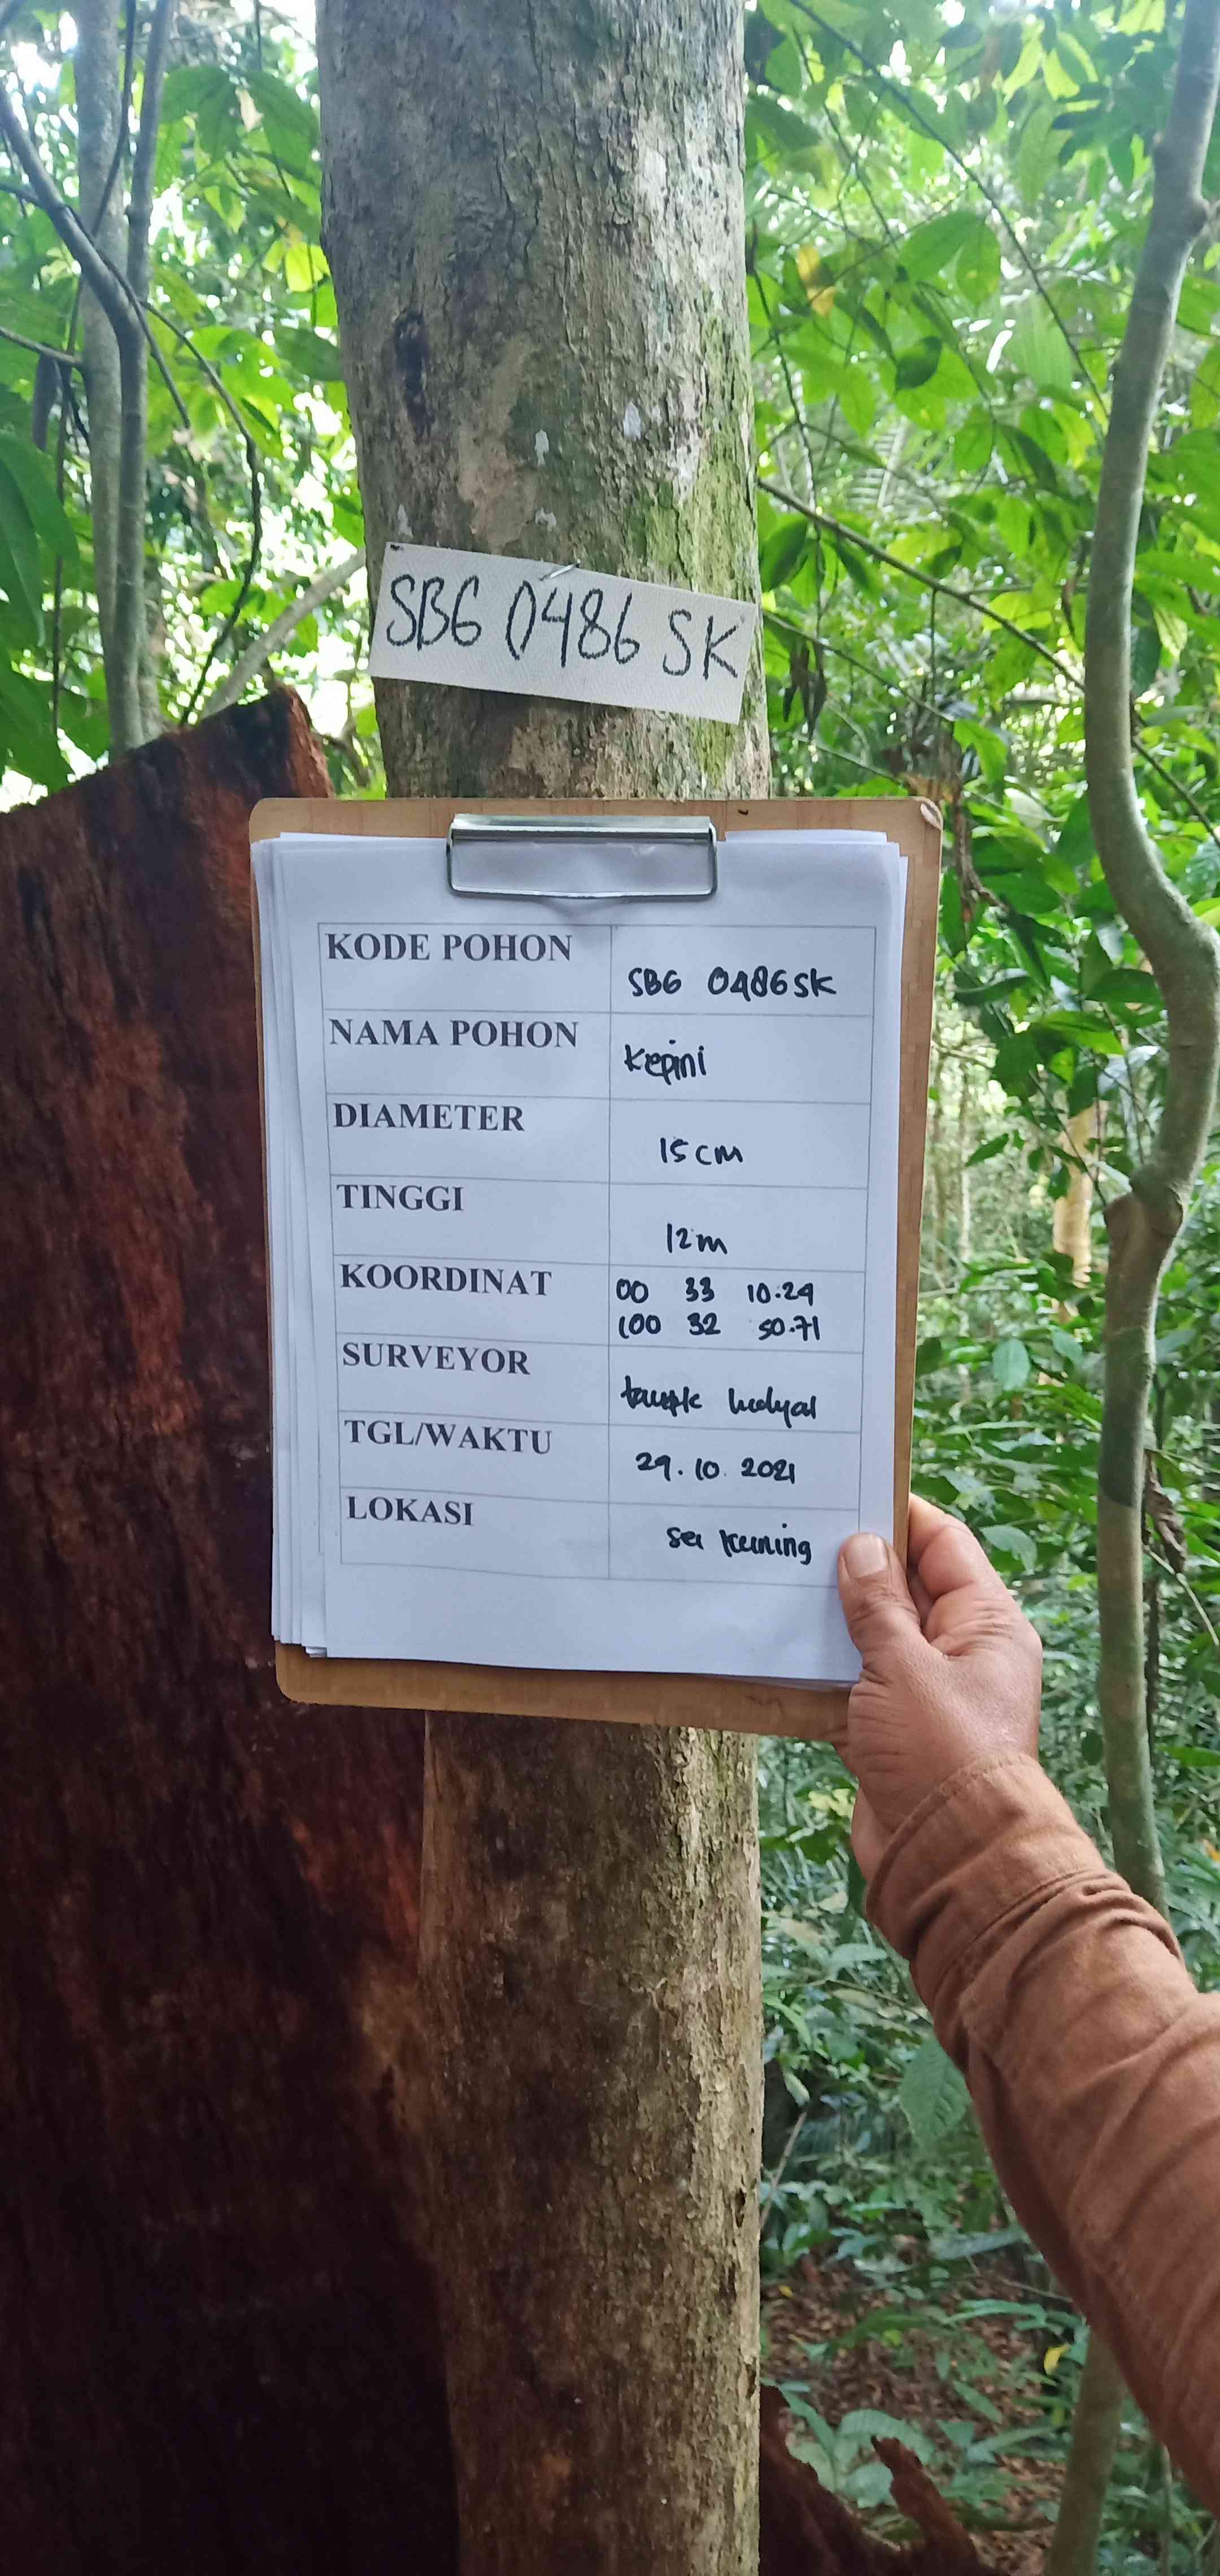 SBG 0486 SK
KODE POHON
SBG 0486 SK
NAMA POHON
Kepini
DIAMETER
15 cm
TINGGI
12 m
KOORDINAT
00 33 10.29
100 32 50.71
SURVEYOR
taufik hidyat
TGL/WAKTU
29.10.2021
LOKASI
sei kuning